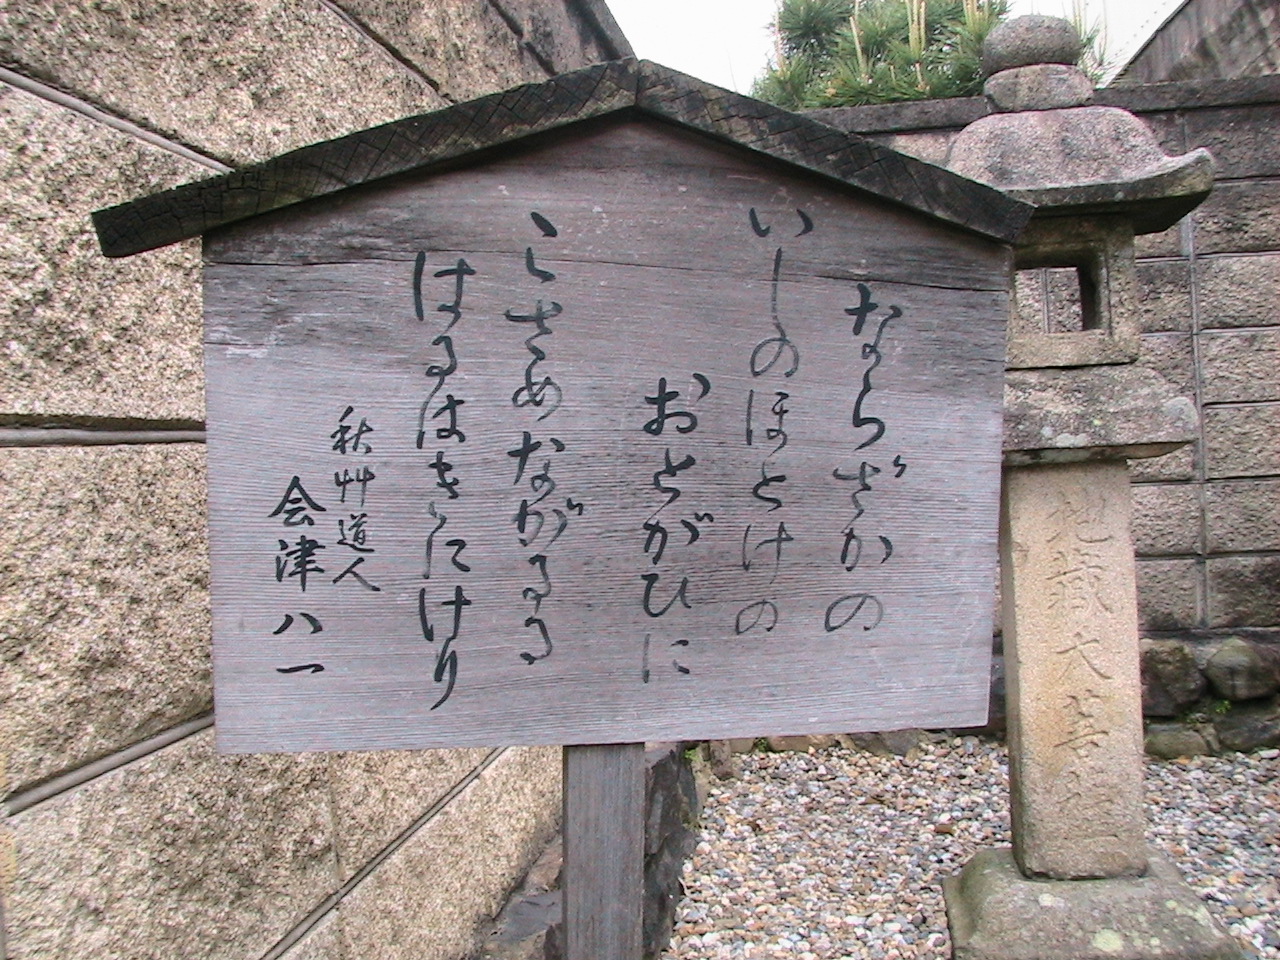 ならざかの
いしのほとけの
おとがひに
こさめながるる
はるはきにけり
秋艸道人
会津八一
地藏大菩薩